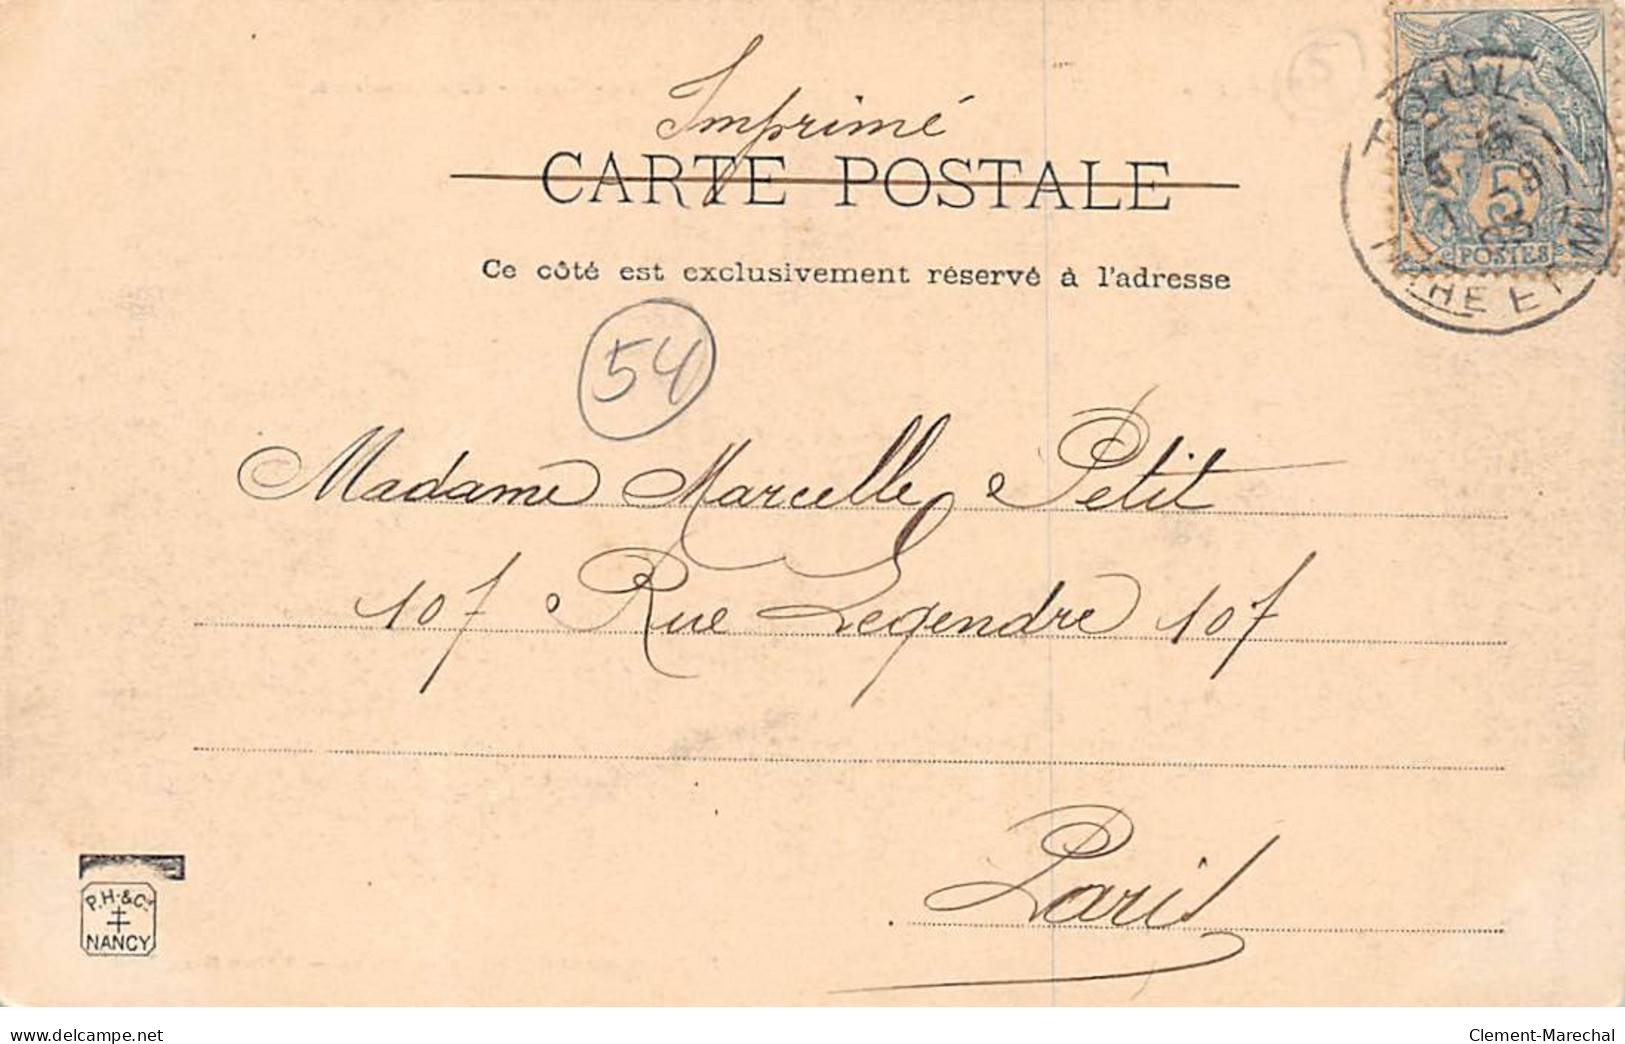 Imprimé
CARTE POSTALE
Ce côté est exclusivement réservé à l'adresse
TOUL
MTHE ET MLLE
5
POSTES
54
Madame Marcelle Petit
107 Rue Legendre 107
Paris
P.H. & Cie
NANCY
www.delcampe.net
Clement-Marechal